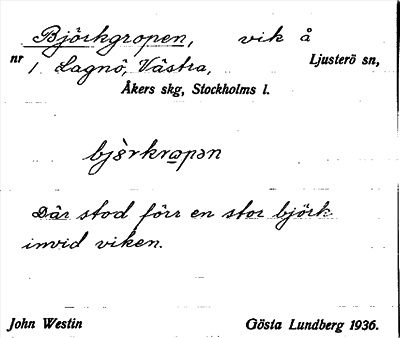 Björkgropen, vik å
nr 1 Lagnö, Västra, Ljusterö sn,
Åkers skg, Stockholms l.
bjɵ̀rkrɷpən
Där stod förr en stor björk
invid viken.
John Westin Gösta Lundberg 1936.